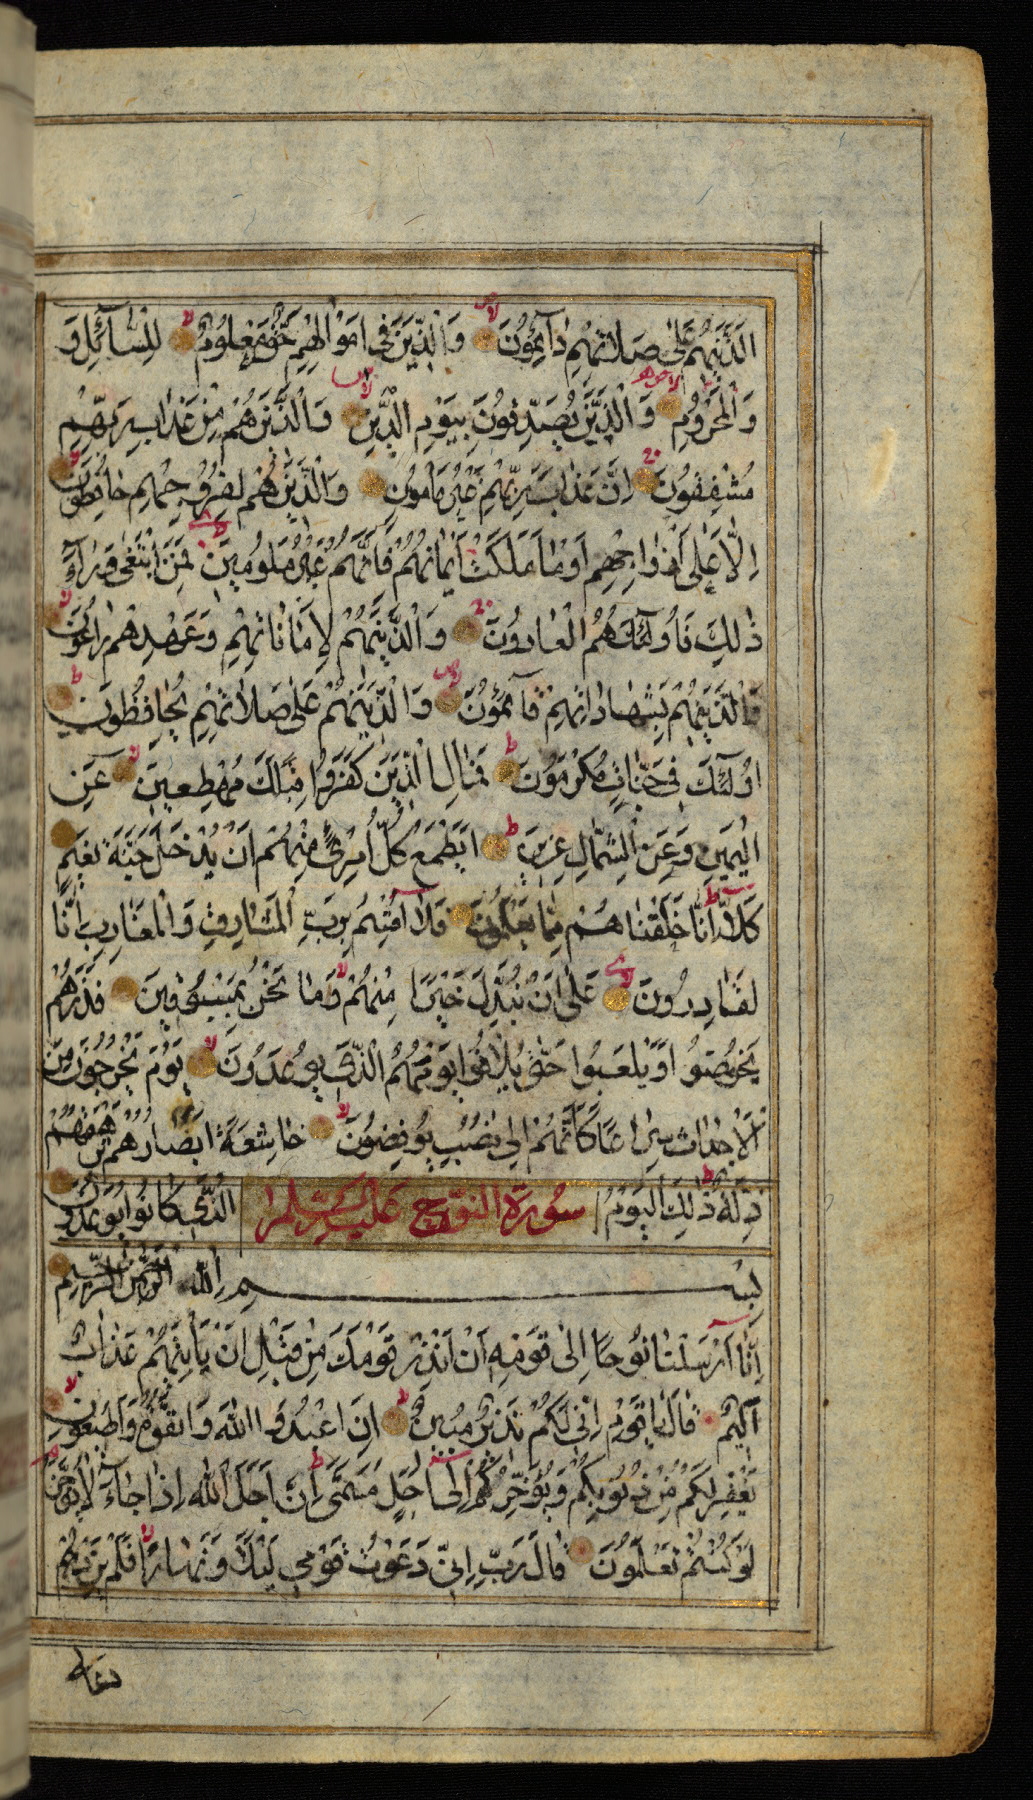 الَّذينَهُمْ عَلٰى صَلاتِهِمْ دٰآئِمُونَ وَالَّذينَ فى اَمْوالِهِمْ حَقٌّ مَعْلُومٌ لِلسّٰآئِلِ وَ
وَالْمَحْرُومِ وَالَّذينَ يُصَدِّقُونَ بِيَوْمِ الدّينِ وَالَّذينَهُمْ مِنْ عَذابِ رَبِّهِمْ
مُشْفِقُونَ اِنَّ عَذابَ رَبِّهِمْ غَيْرُ مَأمُونٍ وَالَّذينَ هُمْ لِفُرُوجِهِمْ حافِظُونَ
اِلّا عَلٰى اَزْواجِهِمْ اَوْ مٰا مَلَكَتْ اَيْمانُهُمْ فَاِنَّهُمْ غَيْرُ مَلُومينَ فَمَنِ ابْتَغٰى وَرٰآءَ
ذٰلِكَ فَاُولٰئِكَ هُمُ الْعادُونَ وَالَّذينَهُمْ لِاَماناتِهِمْ وَعَهْدِهِمْ راعُونَ
وَالَّذينَهُمْ بِشَهاداتِهِمْ قآئِمُونَ وَالَّذينَهُمْ عَلٰى صَلاتِهِمْ يُحافِظُونَ
اُولٰئِكَ فى جَنّاتٍ مُكْرَمُونَ فَمالِ الَّذينَ كَفَرُوا قِبَلَكَ مُهْطِعينَ عَنِ
الْيَمينِ وَعَنِ الشِّمالِ عِزينَ اَيَطْمَعُ كُلُّ امْرِئٍ مِنْهُمْ اَنْ يُدْخَلَ جَنَّةَ نَعيمٍ
كَلّا اِنّا خَلَقْناهُمْ مِمّا يَعْلَمُونَ فَلا اُقْسِمُ بِرَبِّ الْمَشارِقِ وَالْمَغارِبِ اِنّا
لَقادِرُونَ عَلٰى اَنْ نُبَدِّلَ خَيْرًا مِنْهُمْ وَما نَحْنُ بِمَسْبُوقينَ فَذَرْهُمْ
يَخُوضُوا وَيَلْعَبُوا حَتّٰى يُلاقُوا يَوْمَهُمُ الَّذى يُوعَدُونَ يَوْمَ يَخْرُجُونَ مِنَ
الْاَجْداثِ سِراعًا كَاَنَّهُمْ اِلٰى نُصُبٍ يُوفِضُونَ خاشِعَةً اَبْصارُهُمْ تَرْهَقُهُمْ
ذِلَّةٌ ذٰلِكَ الْيَوْمُ سُورَة النوح عليه السلام الَّذى كانُوا يُوعَدُونَ
بِسْمِ اللهِ الرَّحْمٰنِ الرَّحيمِ
اِنّا اَرْسَلْنا نُوحًا اِلٰى قَوْمِه اَنْ اَنْذِرْ قَوْمَكَ مِنْ قَبْلِ اَنْ يَأتِيَهُمْ عَذابٌ
اَليمٌ قالَ يا قَوْمِ اِنّى لَكُمْ نَذيرٌ مُبينٌ اَنِ اعْبُدُوا اللهَ وَاتَّقُوهُ وَاَطيعُونِ
يَغْفِرْ لَكُمْ مِنْ ذُنُوبِكُمْ وَيُؤَخِّرْكُمْ اِلٰى اَجَلٍ مُسَمًّى اِنَّ اَجَلَ اللهِ اِذا جآءَ لا يُؤَخَّرُ
لَوْ كُنْتُمْ تَعْلَمُونَ قالَ رَبِّ اِنّى دَعَوْتُ قَوْمى لَيْلًا وَنَهارًا فَلَمْ يَزِدْهُمْ
دعائى